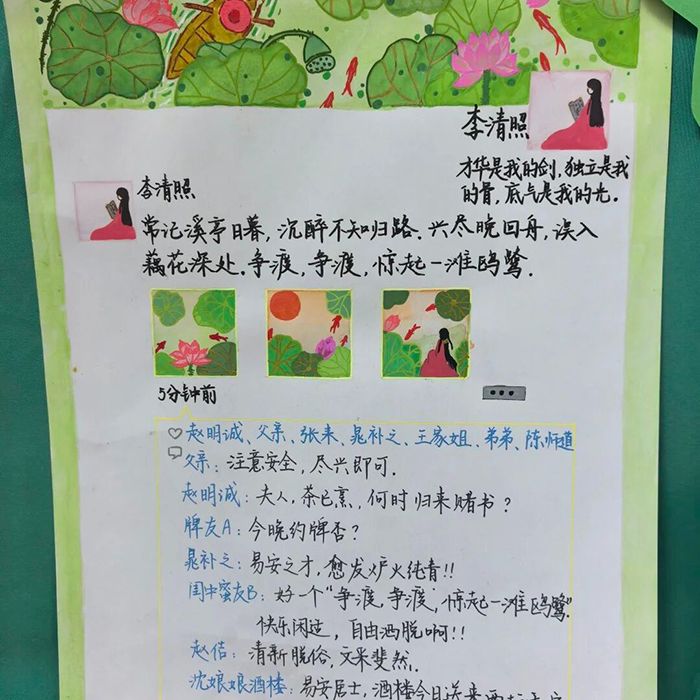 李清照
才华是我的剑,独立是我
的骨,底气是我的光.
李清照
常记溪亭日暮,沉醉不知归路.兴尽晚回舟,误入
藕花深处.争渡,争渡,惊起一滩鸥鹭.
5分钟前
赵明诚、父亲、张耒、晁补之、王家姐、弟弟、陈师道
父亲:注意安全,尽兴即可.
赵明诚:夫人,茶已烹,何时归来赌书?
牌友A:今晚约牌否?
晁补之:易安之才,愈发炉火纯青!!
闺中蜜友B:好一个“争渡,争渡,惊起一滩鸥鹭”.
快乐闲适,自由洒脱啊!!
赵佶:清新脱俗,文采斐然.
沈娘娘酒楼:易安居士,酒楼今日送来